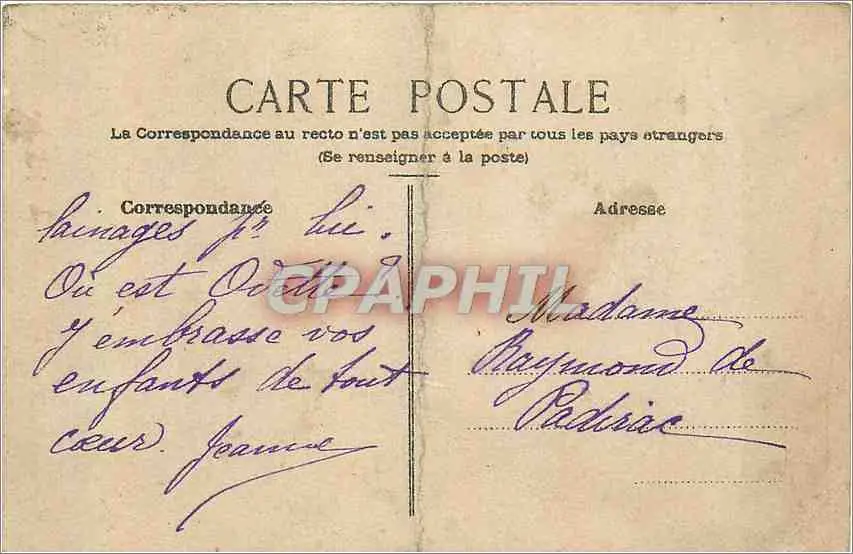 CARTE POSTALE
La Correspondance au recto n'est pas acceptée par tous les pays etrangers
(Se renseigner à la poste)
Correspondance
lainages pr lui.
Où est Odette?
J'embrasse vos
enfants de tout
cœur. Jeanne
CPAPHIL
Adresse
Madame
Raymond de
Padirac